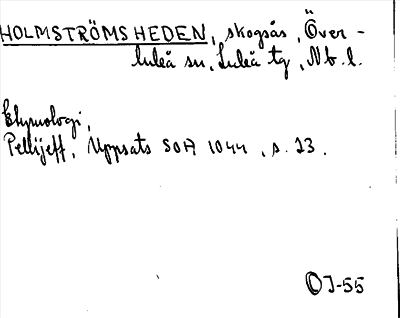 HOLMSTRÖMSHEDEN, skogsås, Över-
luleå sn, Luleå tg, Nb. l.
Etymologi,
Pellijeff, Uppsats SOA 1044, s. 23.
OJ-55